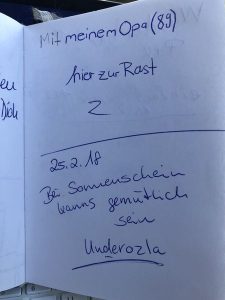 Mit meinem Opa (89)
hier zur Rast
Z
25.2.18
Bei Sonnenschein
kanns gemütlich
sein
Underozla
en
Dich